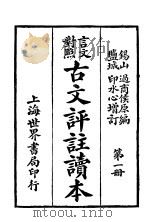 錫山過商侯原編
鹽城印水心增訂
言文
對照
古文評註讀本
第一冊
上海世界書局印行